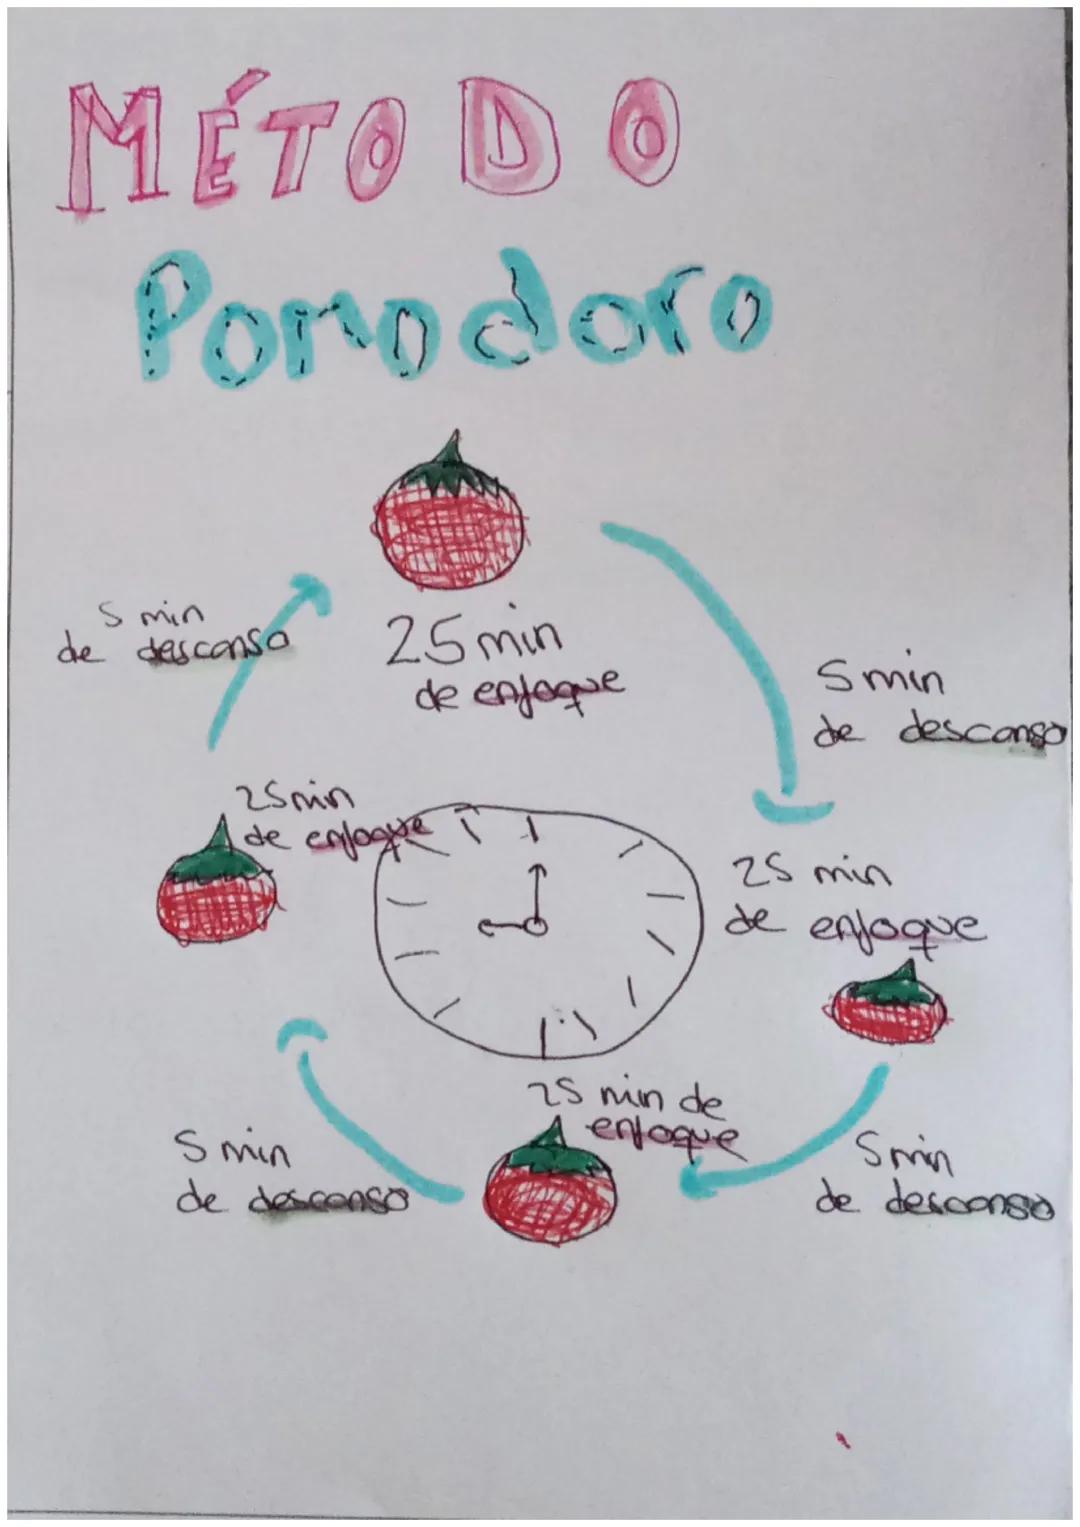 MÉTODO
Pomodoro
5 min
de descanso
25 min
de enfoque
5 min
de descanso
25 min
de enfoque
25 min
de enfoque
25 min de
enfoque
5 min
de descanso
5 min
de descanso